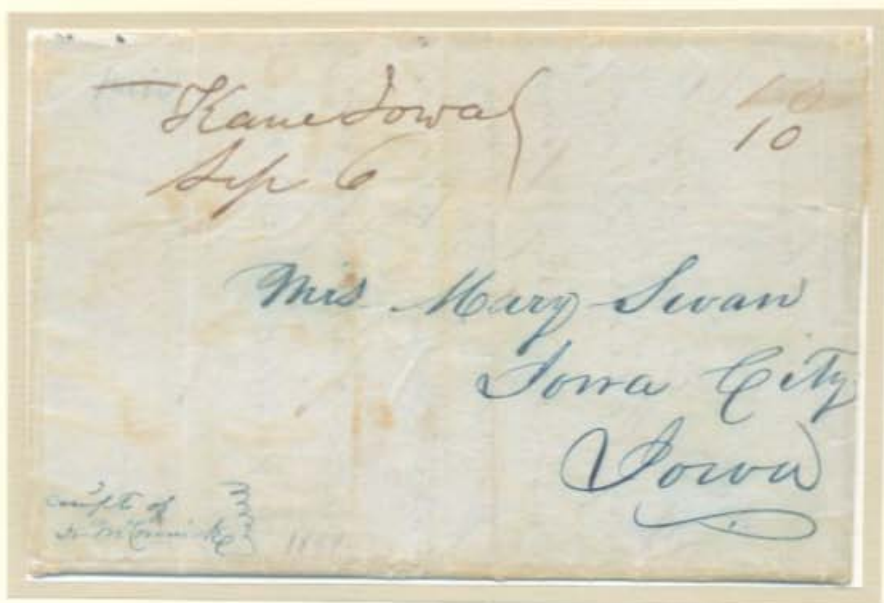 Kane Iowa
Sep 6
10
Mrs Mary Swan
Iowa City
Iowa
of